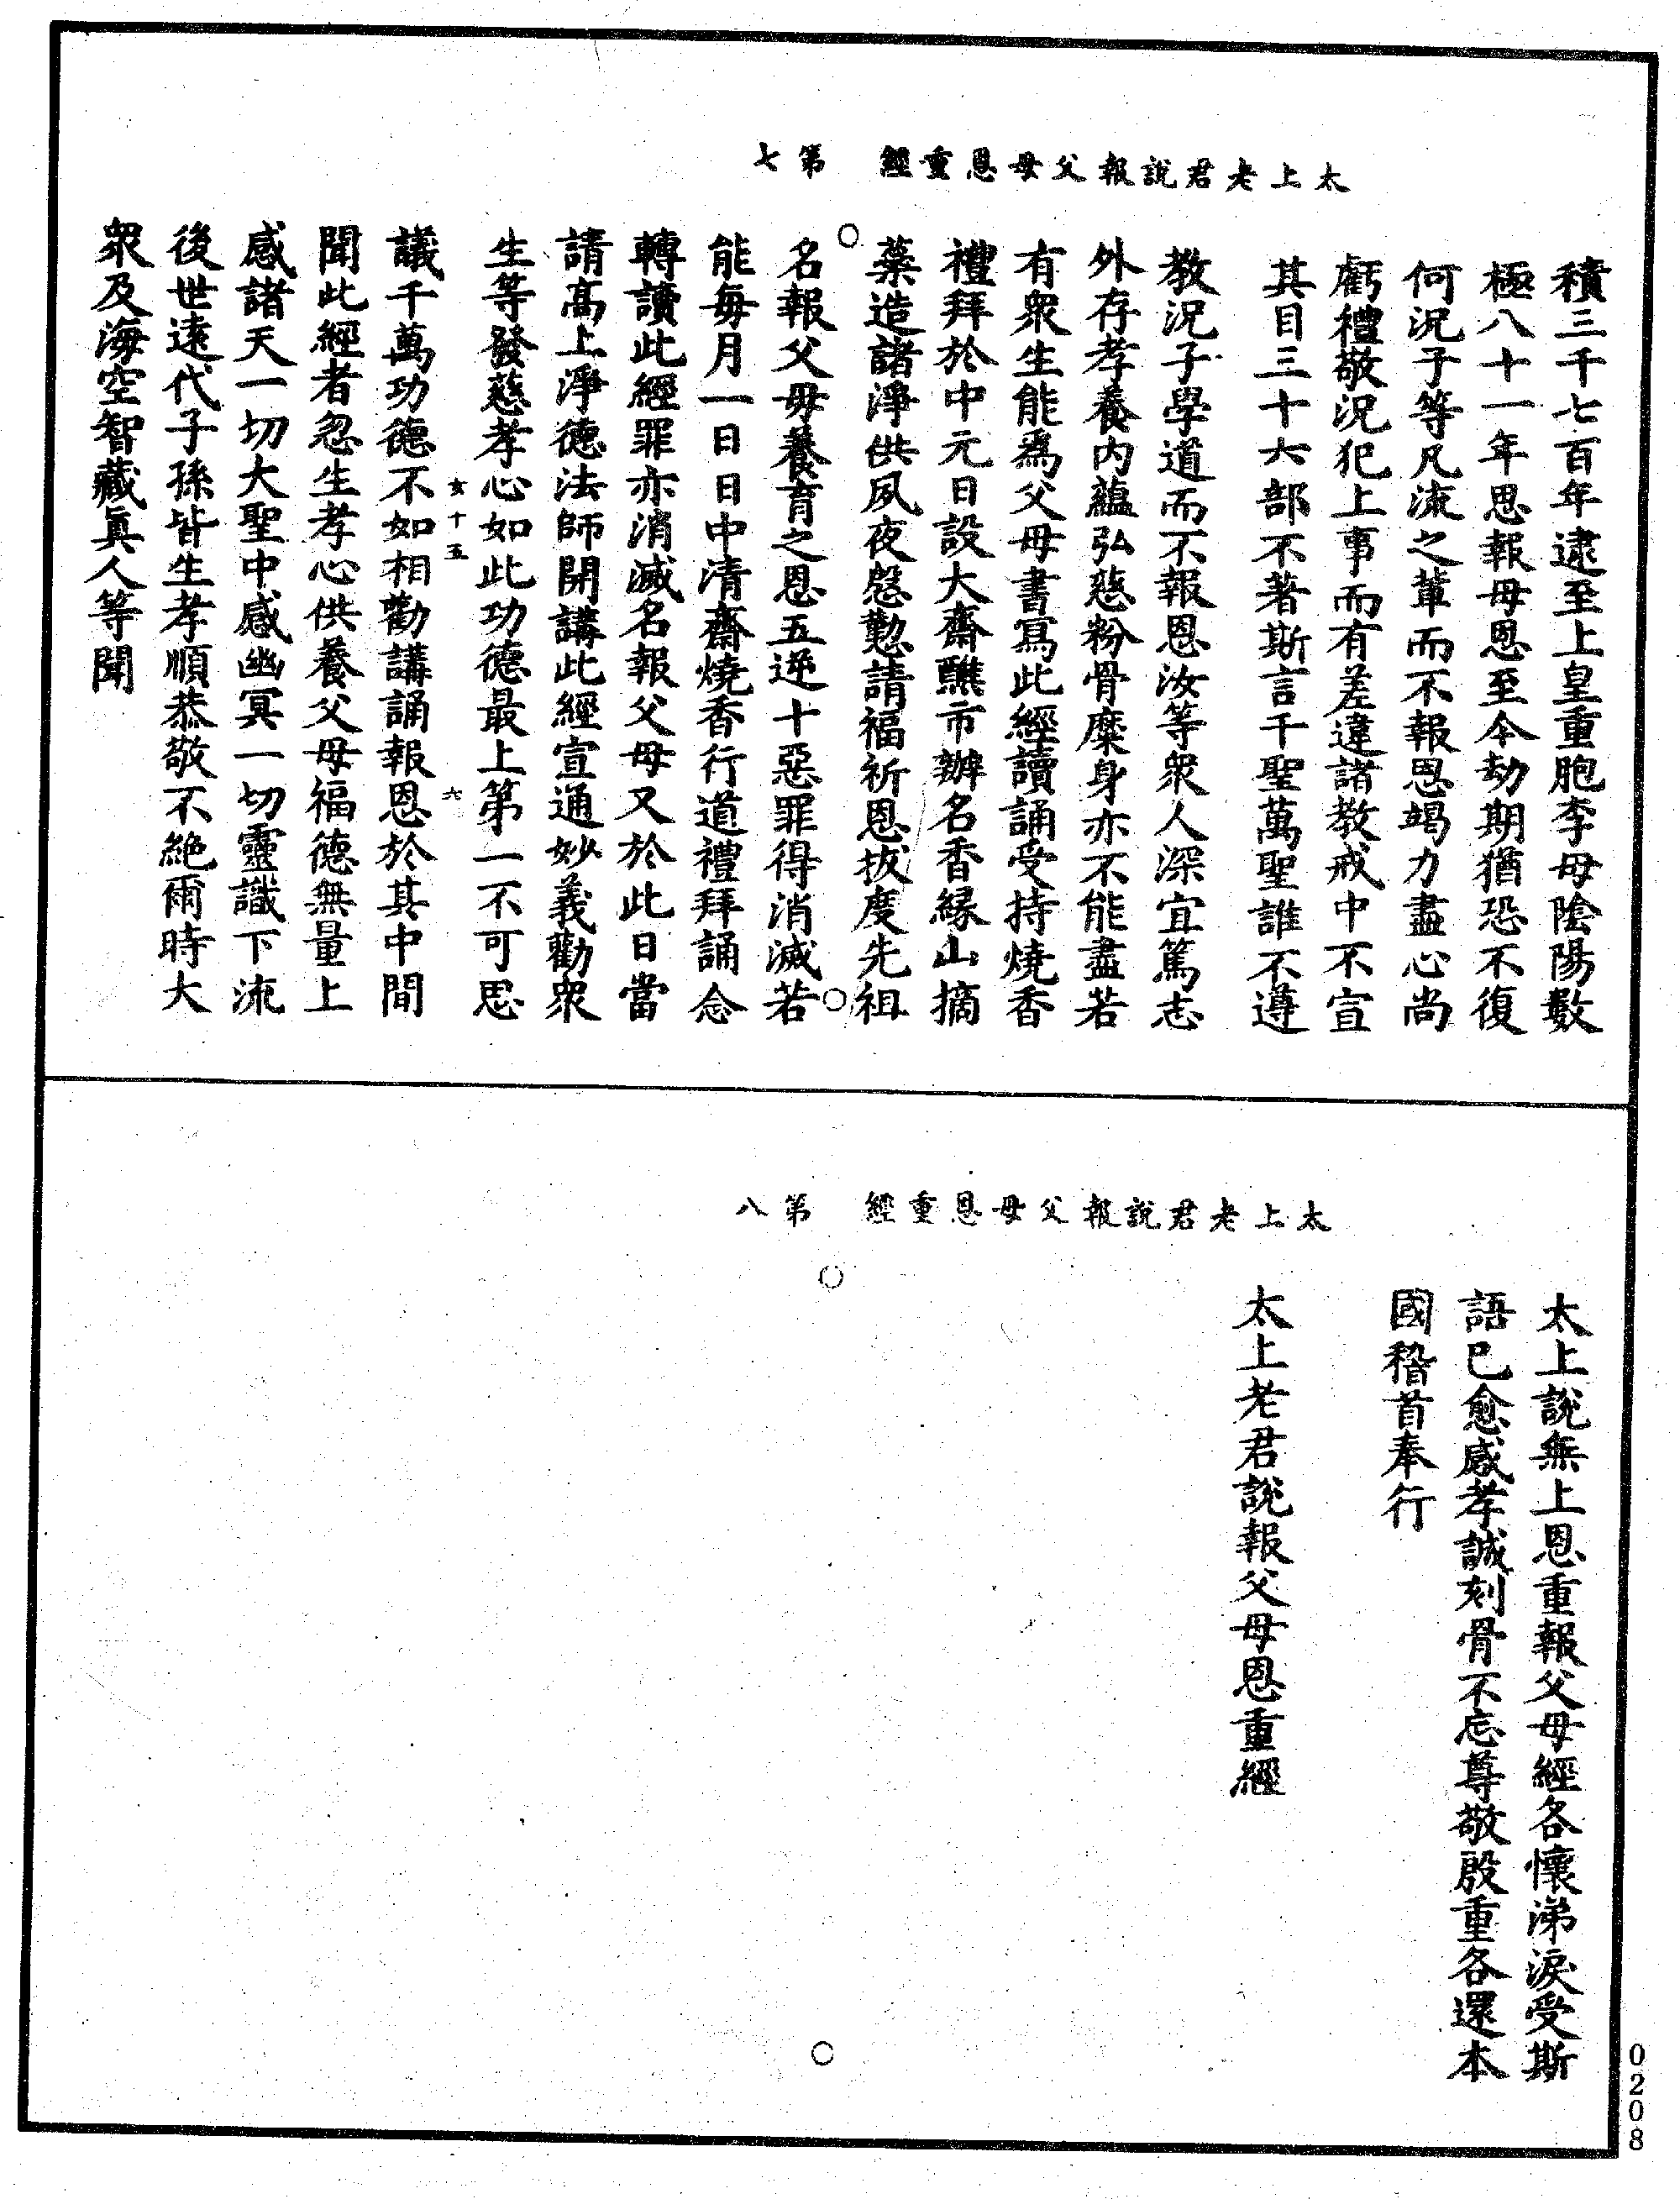 太上老君說報父母恩重經　第七
積三千七百年逮至上皇重胞李母陰陽數
極八十一年思報母恩至今劫期猶恐不復
何況子等凡流之輩而不報恩竭力盡心尚
虧禮敬況犯上事而有差違諸教戒中不宣
其目三十六部不著斯言千聖萬聖誰不遵
教況子學道而不報恩汝等衆人深宜篤志
外存孝養内蘊弘慈粉骨糜身亦不能盡若
有衆生能爲父母書寫此經讀誦受持燒香
禮拜於中元日設大齋醮市辦名香緣山摘
藥造諸淨供夙夜慇懃請福祈恩拔度先祖
名報父母養育之恩五逆十惡罪得消滅若
能每月一日日中清齋燒香行道禮拜誦念
轉讀此經罪亦消滅名報父母又於此日當
請高上淨德法師開講此經宣通妙義勸衆
生等發慈孝心如此功德最上第一不可思
女十五　六
議千萬功德不如相勸講誦報恩於其中間
聞此經者忽生孝心供養父母福德無量上
感諸天一切大聖中感幽冥一切靈識下流
後世遠代子孫皆生孝順恭敬不絶爾時大
衆及海空智藏眞人等聞
太上老君說報父母恩重經　第八
太上說無上恩重報父母經各懷涕淚受斯
語已愈感孝誠刻骨不忘尊敬殷重各還本
國稽首奉行
太上老君說報父母恩重經
0208